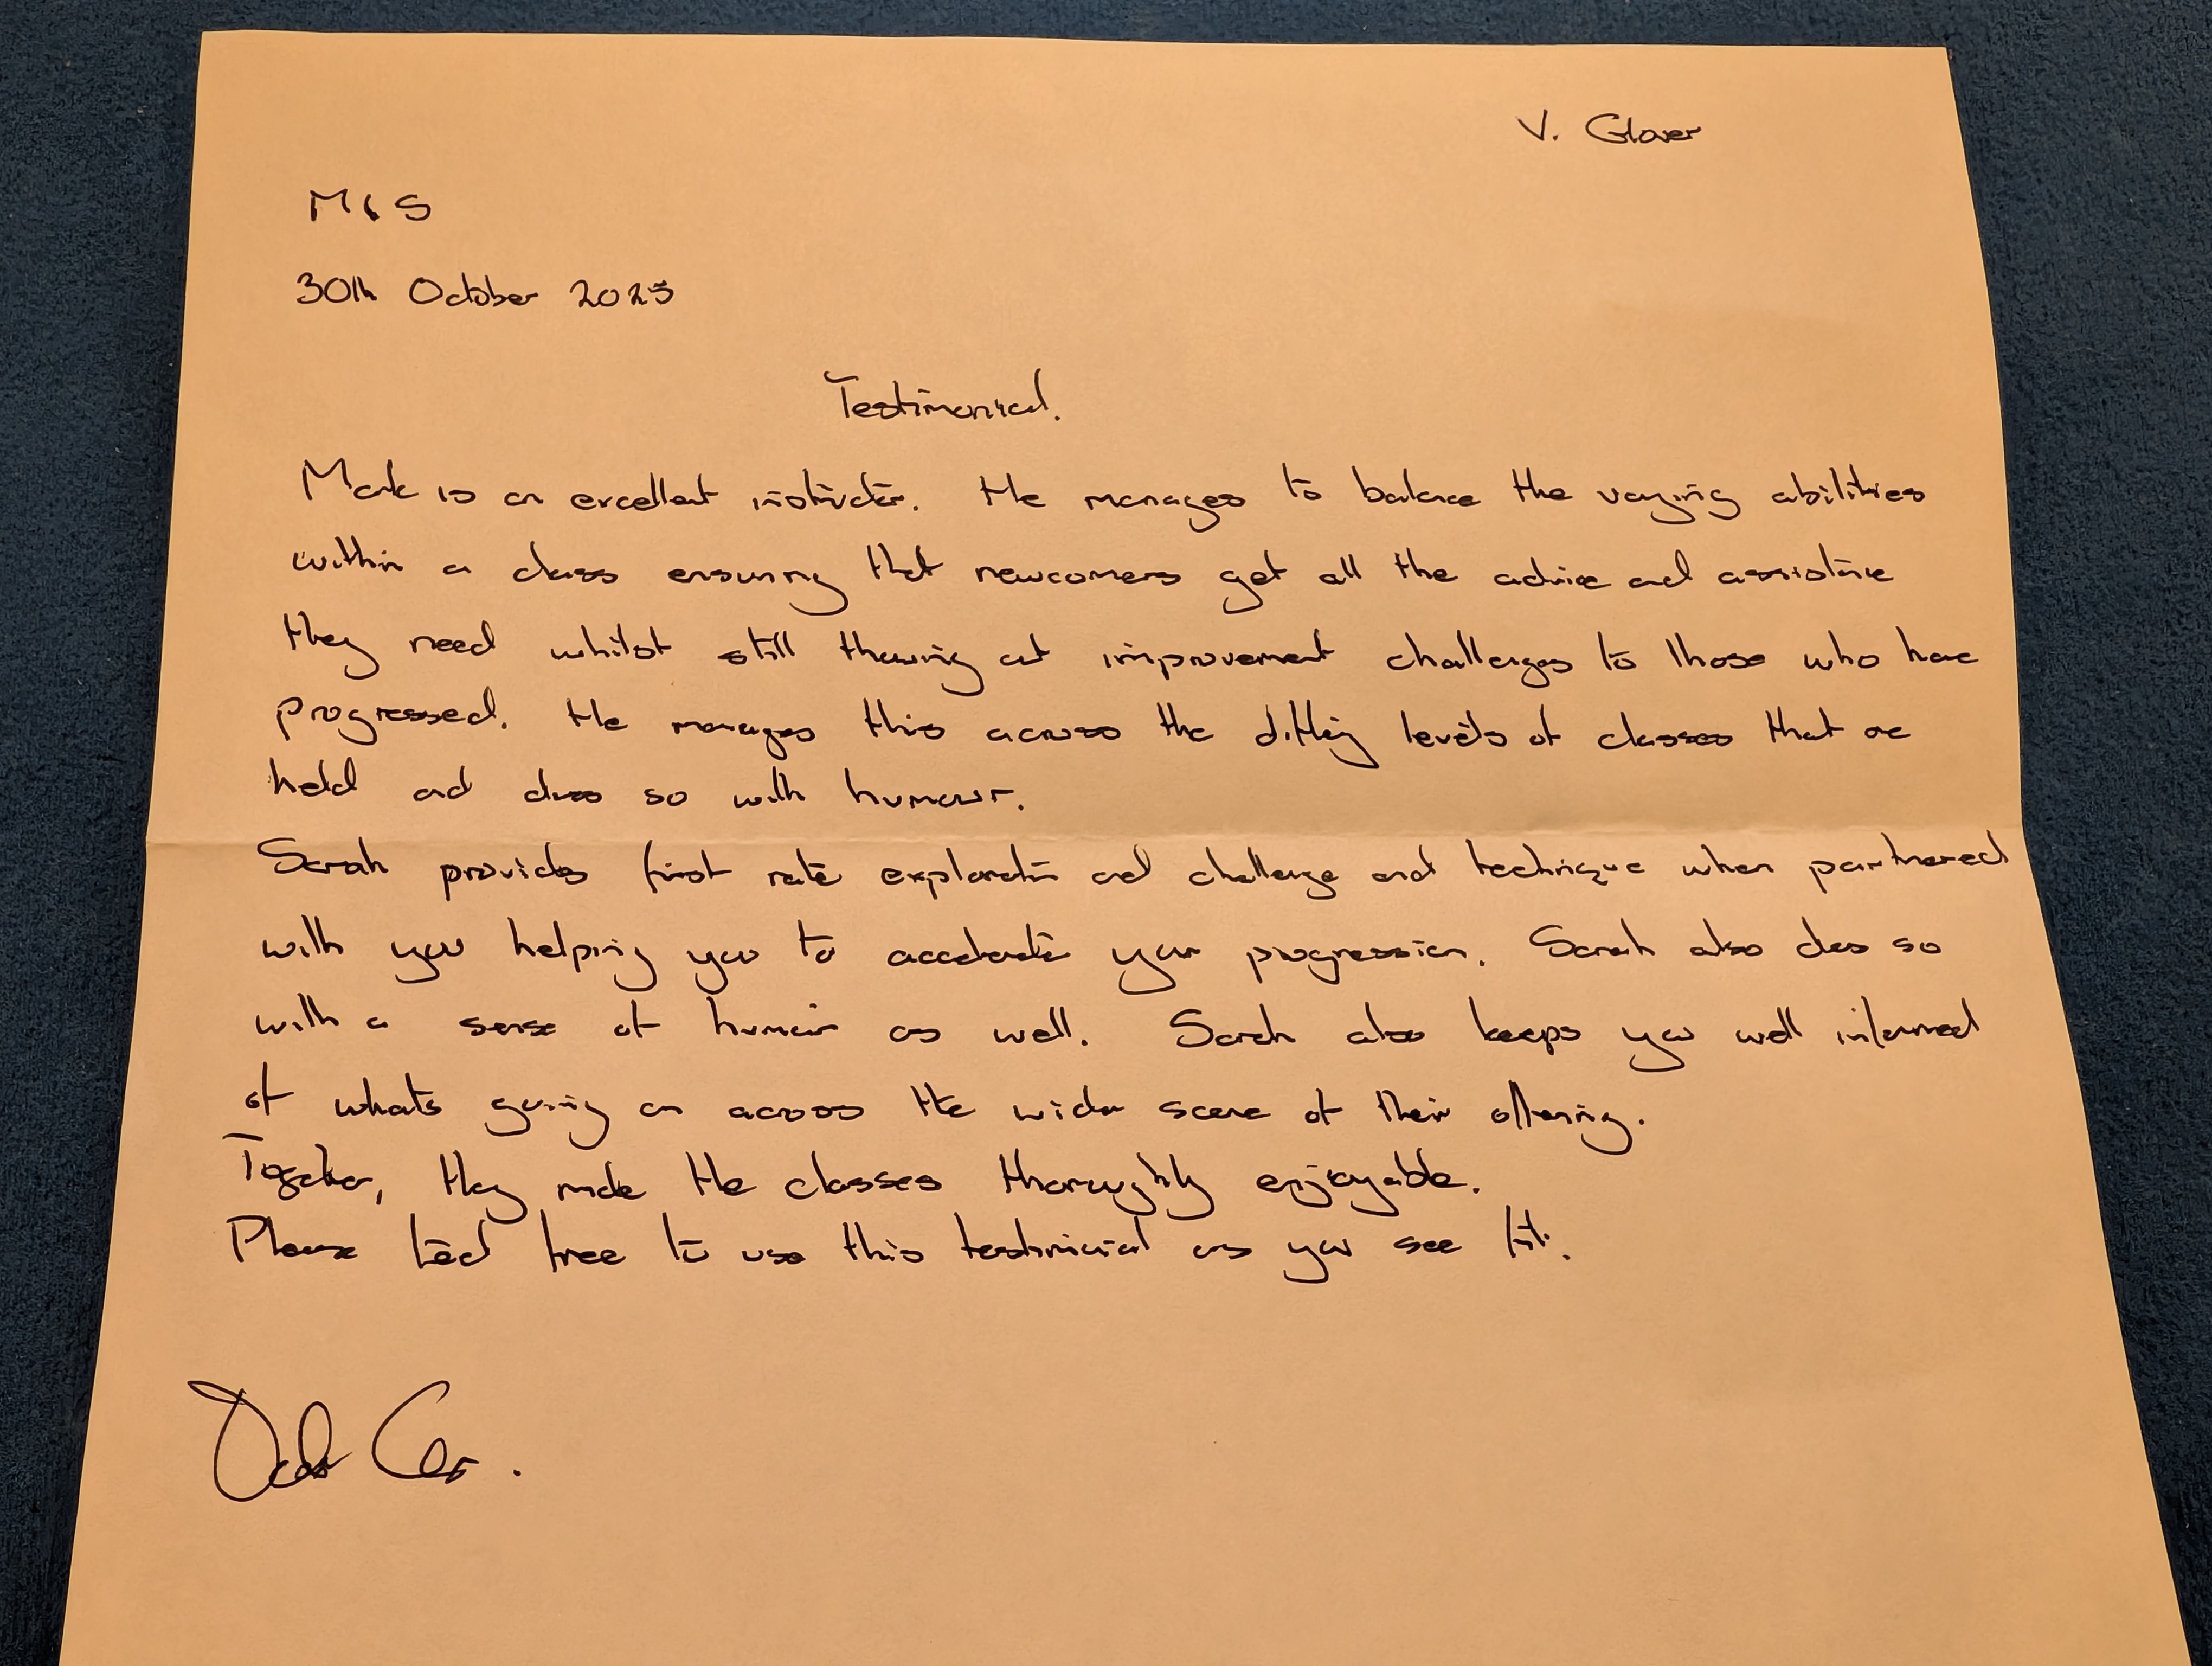 V. Glover
M & S
30th October 2025
Testimonial.
Mark is an excellent instructor. He manages to balance the varying abilities
within a class ensuring that newcomers get all the advice and assistance
they need whilst still throwing out improvement challenges to those who have
progressed. He manages this across the differing levels of classes that are
held and does so with humour.
Sarah provides first rate explanation and challenge and technique when partnered
with you helping you to accelerate your progression. Sarah also does so
with a sense of humour as well. Sarah also keeps you well informed
of whats going on across the wider scene of their offering.
Together, they made the classes thoroughly enjoyable.
Please feel free to use this testimonial as you see fit.